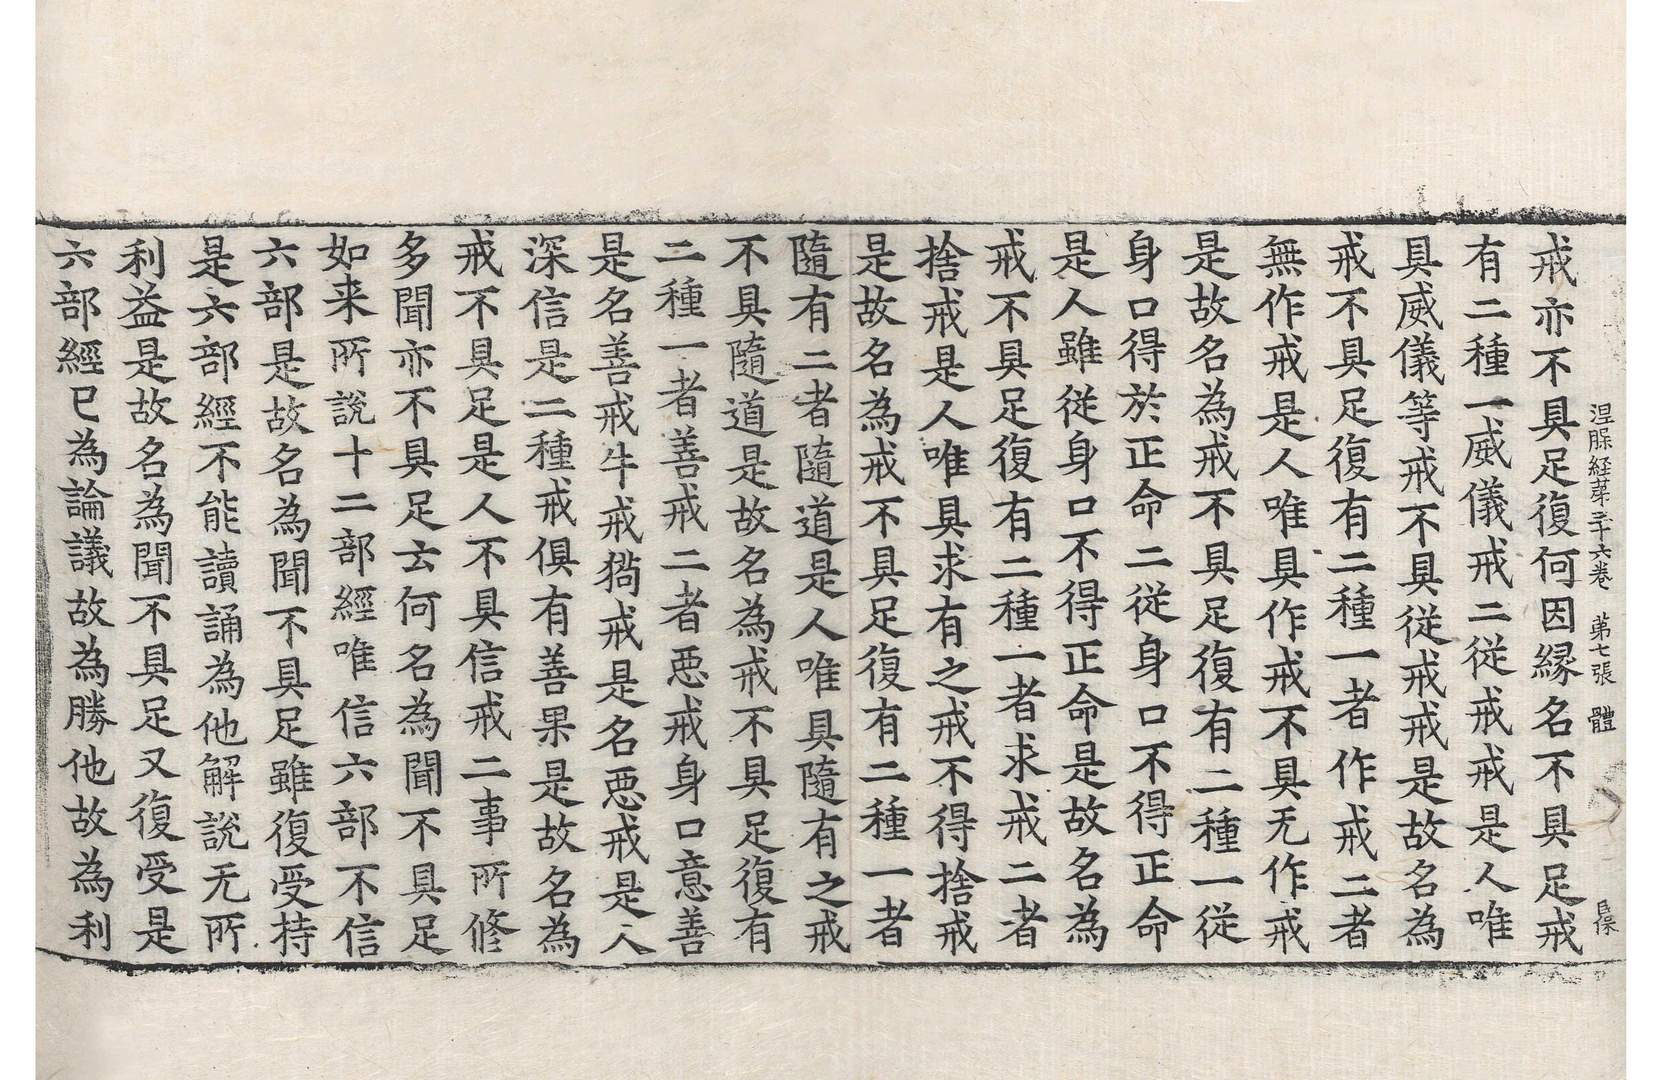 涅槃経苐三十六卷　苐七張　體
戒亦不具足復何因縁名不具足戒
有二種一威儀戒二從戒戒是人唯
具威儀等戒不具從戒戒是故名為
戒不具足復有二種一者作戒二者
無作戒是人唯具作戒不具无作戒
是故名為戒不具足復有二種一從
身口得於正命二從身口不得正命
是人雖從身口不得正命是故名為
戒不具足復有二種一者求戒二者
捨戒是人唯具求有之戒不得捨戒
是故名為戒不具足復有二種一者
隨有二者隨道是人唯具隨有之戒
不具隨道是故名為戒不具足復有
二種一者善戒二者惡戒身口意善
是名善戒牛戒狗戒是名惡戒是人
深信是二種戒俱有善果是故名為
戒不具足是人不具信戒二事所修
多聞亦不具足云何名為聞不具足
如来所說十二部經唯信六部不信
六部是故名為聞不具足雖復受持
是六部經不能讀誦為他解說无所
利益是故名為聞不具足又復受是
六部經已為論議故為勝他故為利